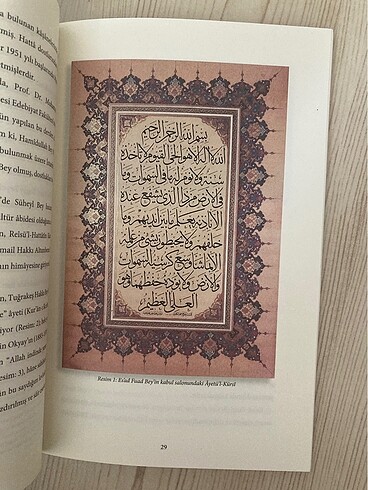 a bulunan kâşâne
miş. Hattâ dostlar
r 1951 yılı başların
etmişlerdir.
a, Prof. Dr. M
esi Edebiyat Fakült
ün yapılan bu ders
m ki, Hamîdullah Be
bulunmak üzere İstan
Bey olmuş, dostlukla
de Süheyl Bey
ltür âbidesi olduğu
n, Reîsü'l-Hattâtîn
mail Hakkı Altunbe
n himâyesine
n, Tuğrakeş Hakkı Be
e" âyeti (Kur'ân
iyor (Resim: 2),
in Okyay'ın (18
n "Allah indinde
sim: 3), hâne
n bu saydığım
zdırılmış ve
بسم الله الرحمن الرحيم
الله لا اله الا هو الحي القيوم لا تأخذه
سنة ولا نوم له ما في السموات وما
في الارض من ذا الذي يشفع عنده
الا باذنه يعلم ما بين ايديهم وما
خلفهم ولا يحيطون بشئ من علمه
الا بما شاء وسع كرسيه السموات
والارض ولا يؤده حفظهما وهو
العلي العظيم
Resim 1: Es'ad Fuad Bey'in kabul salonundaki Âyetü'l-Kürsî
29